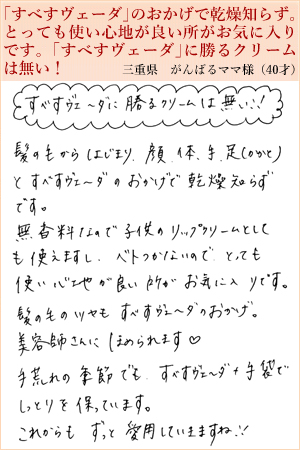 「すべすヴェーダ」のおかげで乾燥知らず。
とっても使い心地が良い所がお気に入り
です。「すべすヴェーダ」に勝るクリーム
は無い！
三重県　がんばるママ様（40才）
すべすヴェーダに勝るクリームは無い!!
髪の毛からはじまり、顔、体、手、足(かかと)
とすべすヴェーダのおかげで乾燥知らず
です。
無香料なので子供のリップクリームとして
も使えますし、ベトつかないので、とっても
使い心地が良い所がお気に入りです。
髪の毛のツヤもすべすヴェーダのおかげ。
美容師さんにほめられます♡
手荒れの季節でも、すべすヴェーダ+手袋で
しっとりを保っています。
これからもずっと愛用していきますね!!